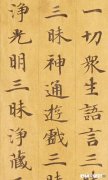 一切衆生語言三
三昧神通遊戲三
淨光明三昧淨藏